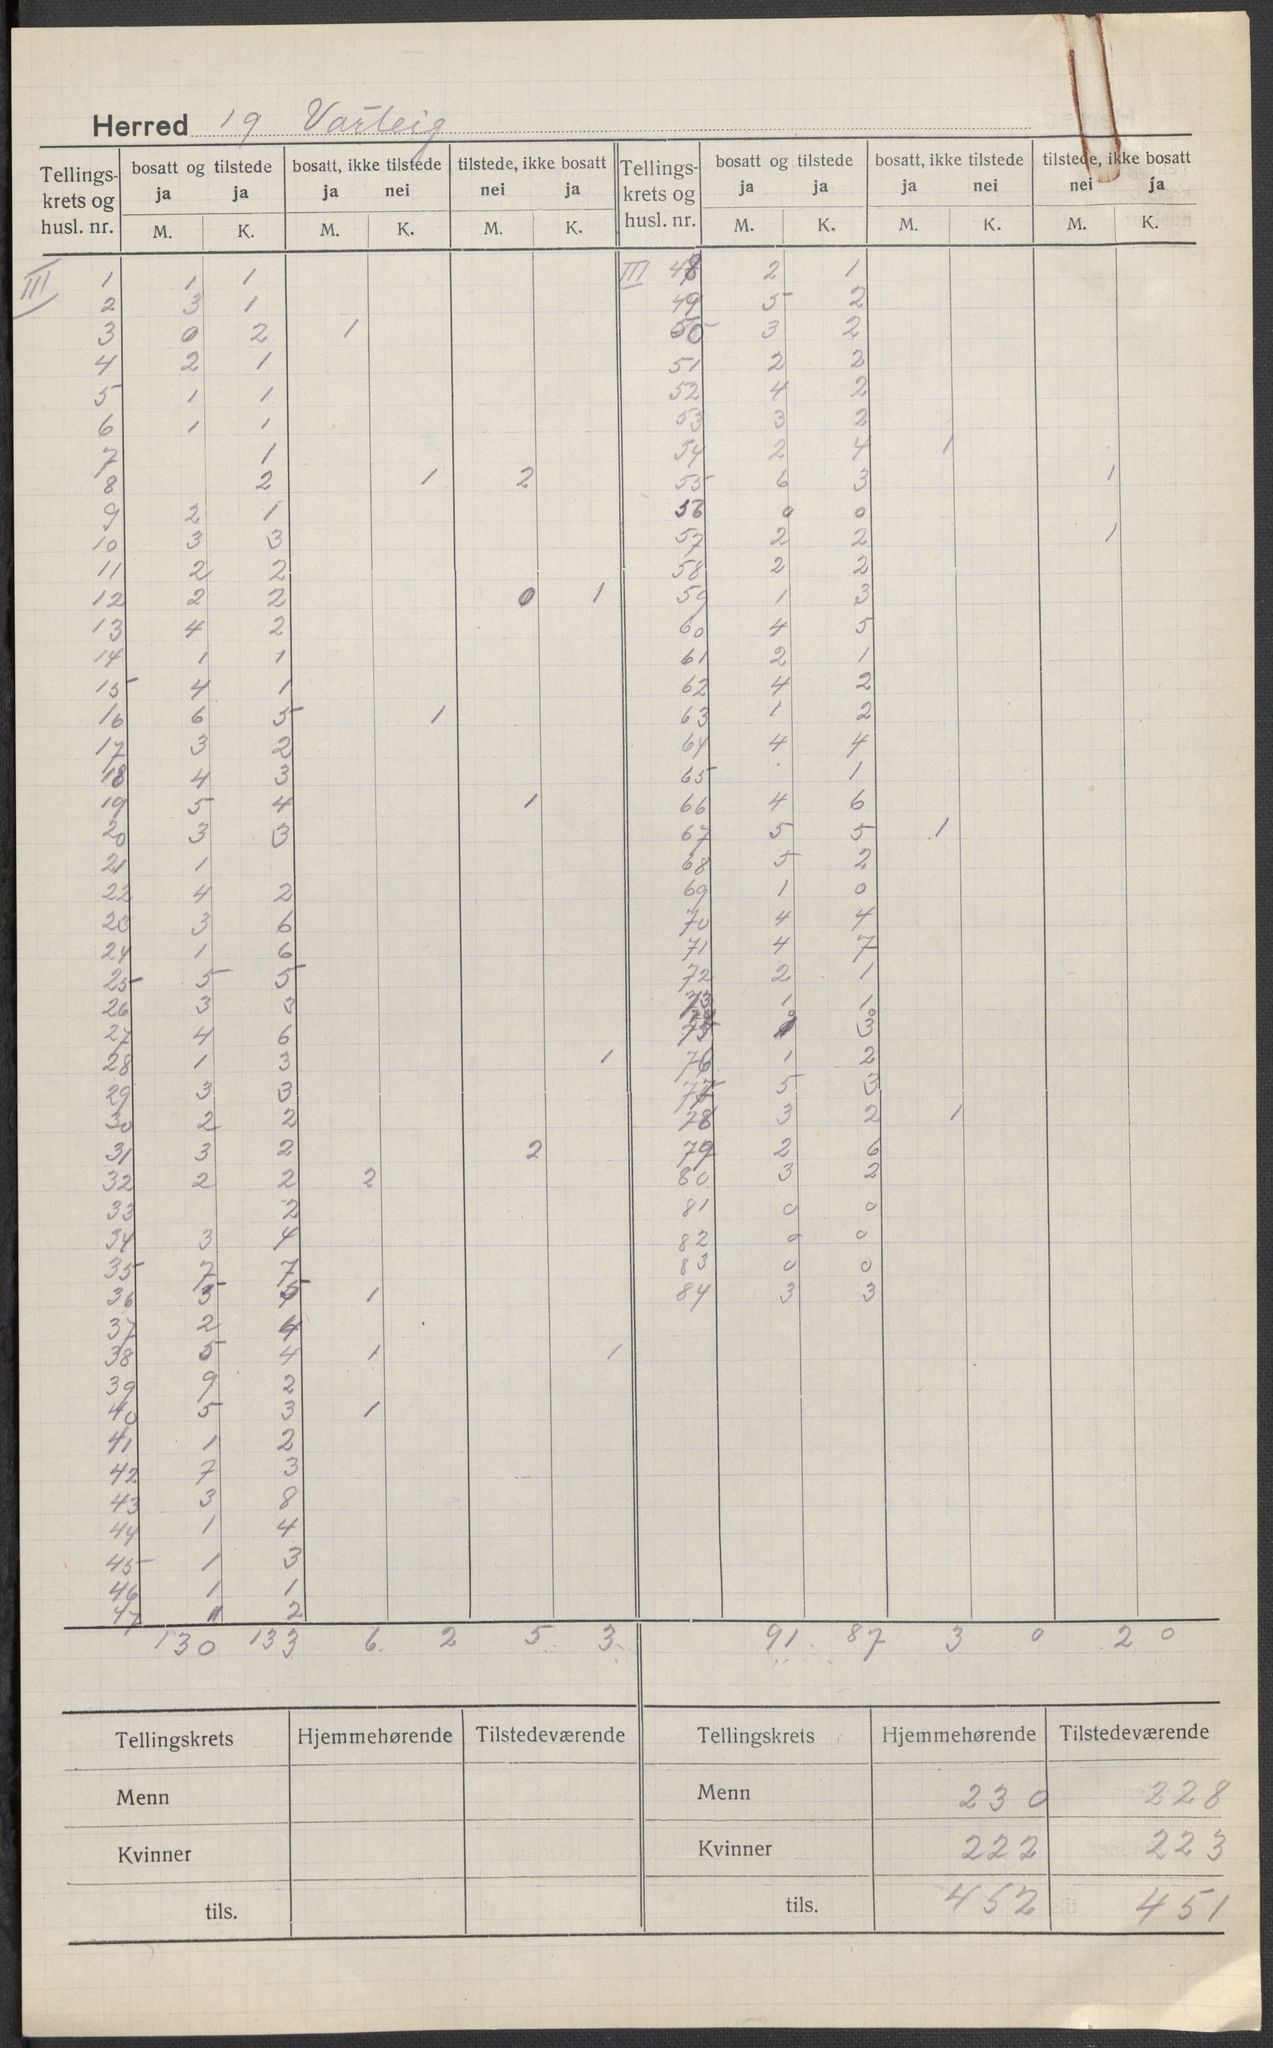 Herred 19 Varteig
Tellings-krets og husl. nr. | bosatt og tilstede ja ja M. K. | bosatt, ikke tilstede ja nei M. K. | tilstede, ikke bosatt nei ja M. K. | Tellings-krets og husl. nr. | bosatt og tilstede ja ja M. K. | bosatt, ikke tilstede ja nei M. K. | tilstede, ikke bosatt nei ja M. K.
III 1 1 1
2 3 1
3 0 2 1
4 2 1
5 1 1
6 1 1
7 1
8 2 1 2
9 2 1
10 3 3
11 2 2
12 2 2 0 1
13 4 2
14 1 1
15 4 1
16 6 5 1
17 3 2
18 4 3
19 5 4 1
20 3 3
21 1
22 4 2
23 3 6
24 1 6
25 5 5
26 3 3
27 4 6
28 1 3 1
29 3 3
30 2 2
31 3 2 2
32 2 2 2
33 2
34 3 4
35 7 7
36 5 5 1
37 2 4
38 5 4 1 1
39 9 2
40 5 3 1
41 1 2
42 7 3
43 3 8
44 1 4
45 1 3
46 1 1
47 2
130 133 6 2 5 3
III 48 2 1
49 5 2
50 3 2
51 2 2
52 4 2
53 3 2
54 2 4 1
55 6 3 1
56 0 0
57 2 2 1
58 2 2
59 1 3
60 4 5
61 2 1
62 4 2
63 1 2
64 4 4
65 1
66 4 6
67 5 5 1
68 5 2
69 1 0
70 4 4
71 4 7
72 2 1
73 1 1
74
75 3
76 1 2
77 5 3
78 3 2 1
79 2 6
80 3 2
81 0 0
82 0 0
83 0 0
84 3 3
91 87 3 0 2 0
Tellingskrets Hjemmehørende Tilstedeværende Tellingskrets Hjemmehørende Tilstedeværende
Menn Menn 230 228
Kvinner Kvinner 222 223
tils. tils. 452 451